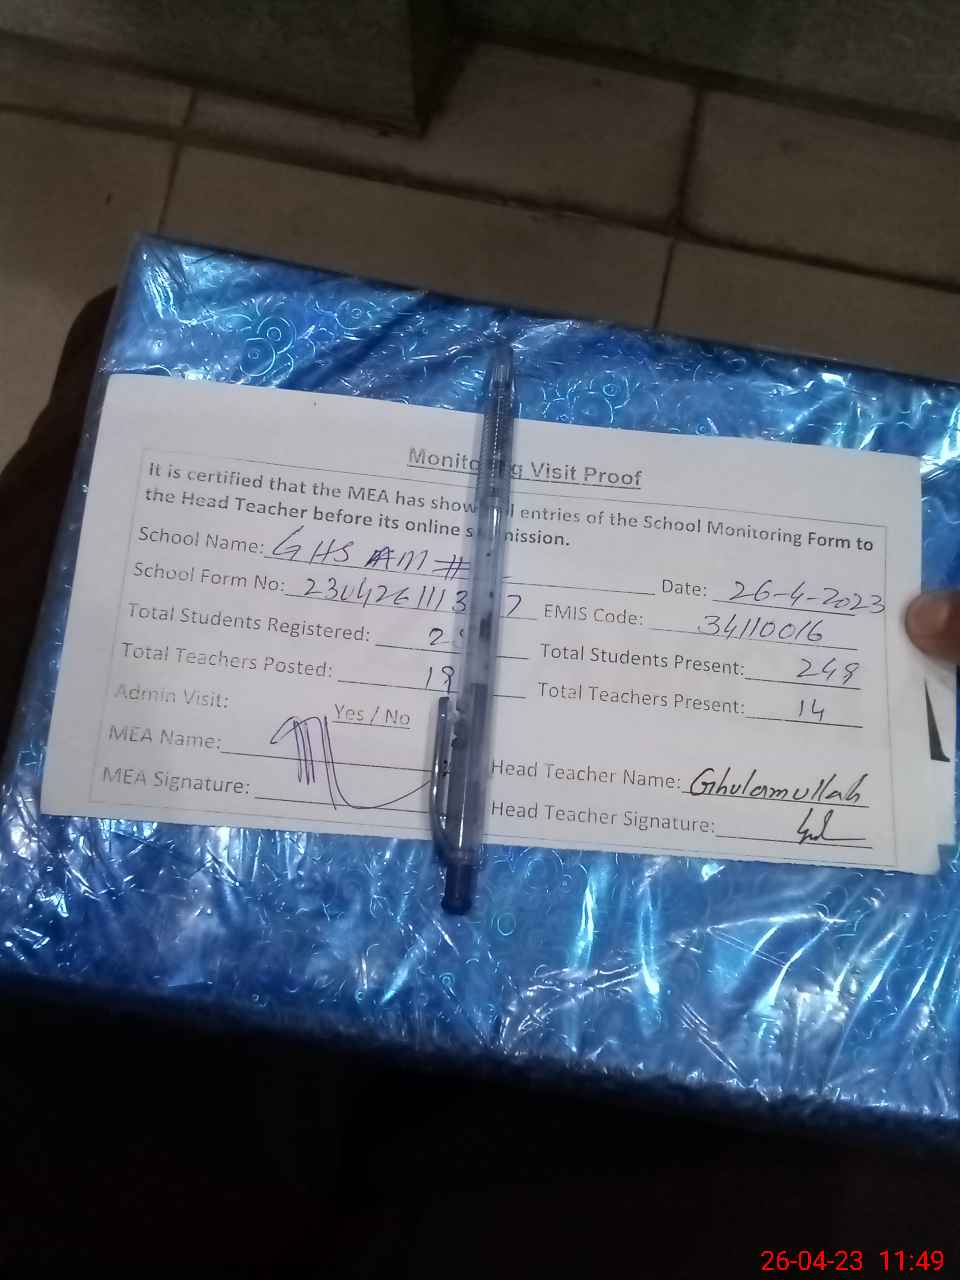 Monito ng Visit Proof
It is certified that the MEA has show l entries of the School Monitoring Form to
the Head Teacher before its online s mission.
School Name: GHS AM# Date: 26-4-2023
School Form No: 2304261113 7 EMIS Code: 34110016
Total Students Registered: 2 Total Students Present: 248
Total Teachers Posted: 19 Total Teachers Present: 14
Admin Visit: Yes / No
MEA Name: Head Teacher Name: Ghulamullah
MEA Signature: Head Teacher Signature:
26-04-23 11:49